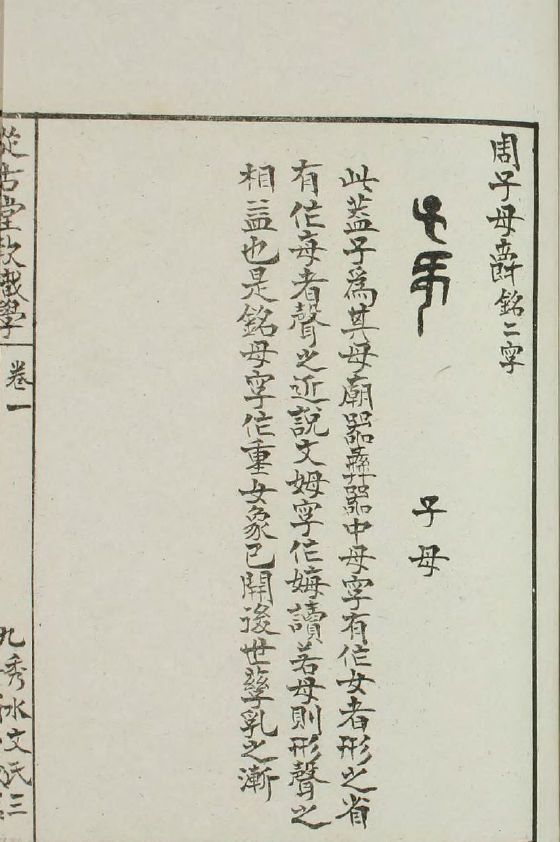 周子母爵銘二字
子母
此葢子爲其母廟器彝器中母字有作女者形之省
有作每者聲之近說文姆字作娒讀若母則形聲之
相益也是銘母字作重女象已開後世孳乳之漸
從古堂款識學
卷一
九秀水文氏三